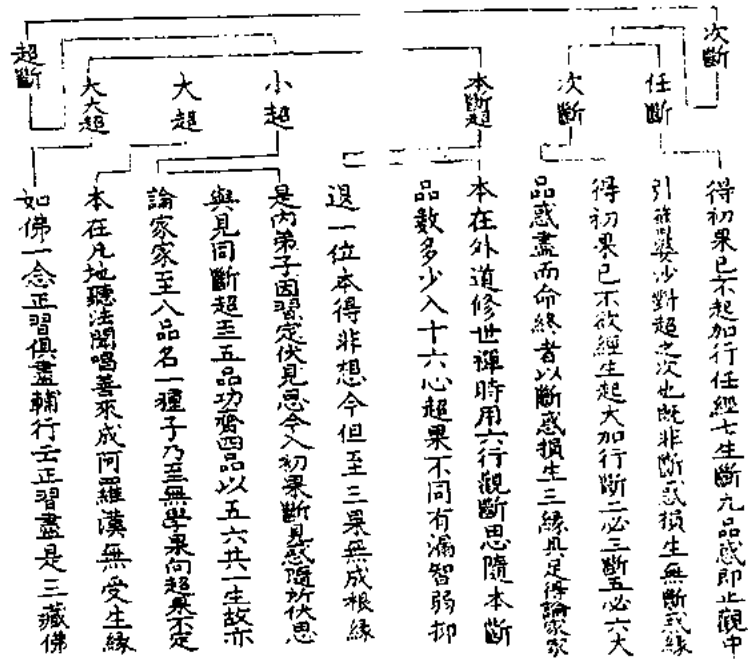 次斷
任斷
次斷
本斷超
小超
大超
大大超
超斷
得初果已不起加行任經七生斷九品惑即止觀中
引婆沙對超之次也既非斷惑損生無斷惑緣
得初果已不欲經生起大加行斷二必三斷五必六大
品惑盡而命終者以斷惑損生三緣具足得論家家
本在外道修世禪時用六行觀斷思隨本斷
品數多少入十六心超果不同有漏智弱抑
退一位本得非想今但至三果無成根緣
是內弟子因習定伏見思今入初果斷見惑隨所伏思
與見同斷超至五品功齊四品以五六共一生故亦
論家家至八品名一種子乃至無學果向超果不定
本在凡地聽法聞唱善來成阿羅漢無受生緣
如佛一念正習俱盡輔行云正習盡是三藏佛